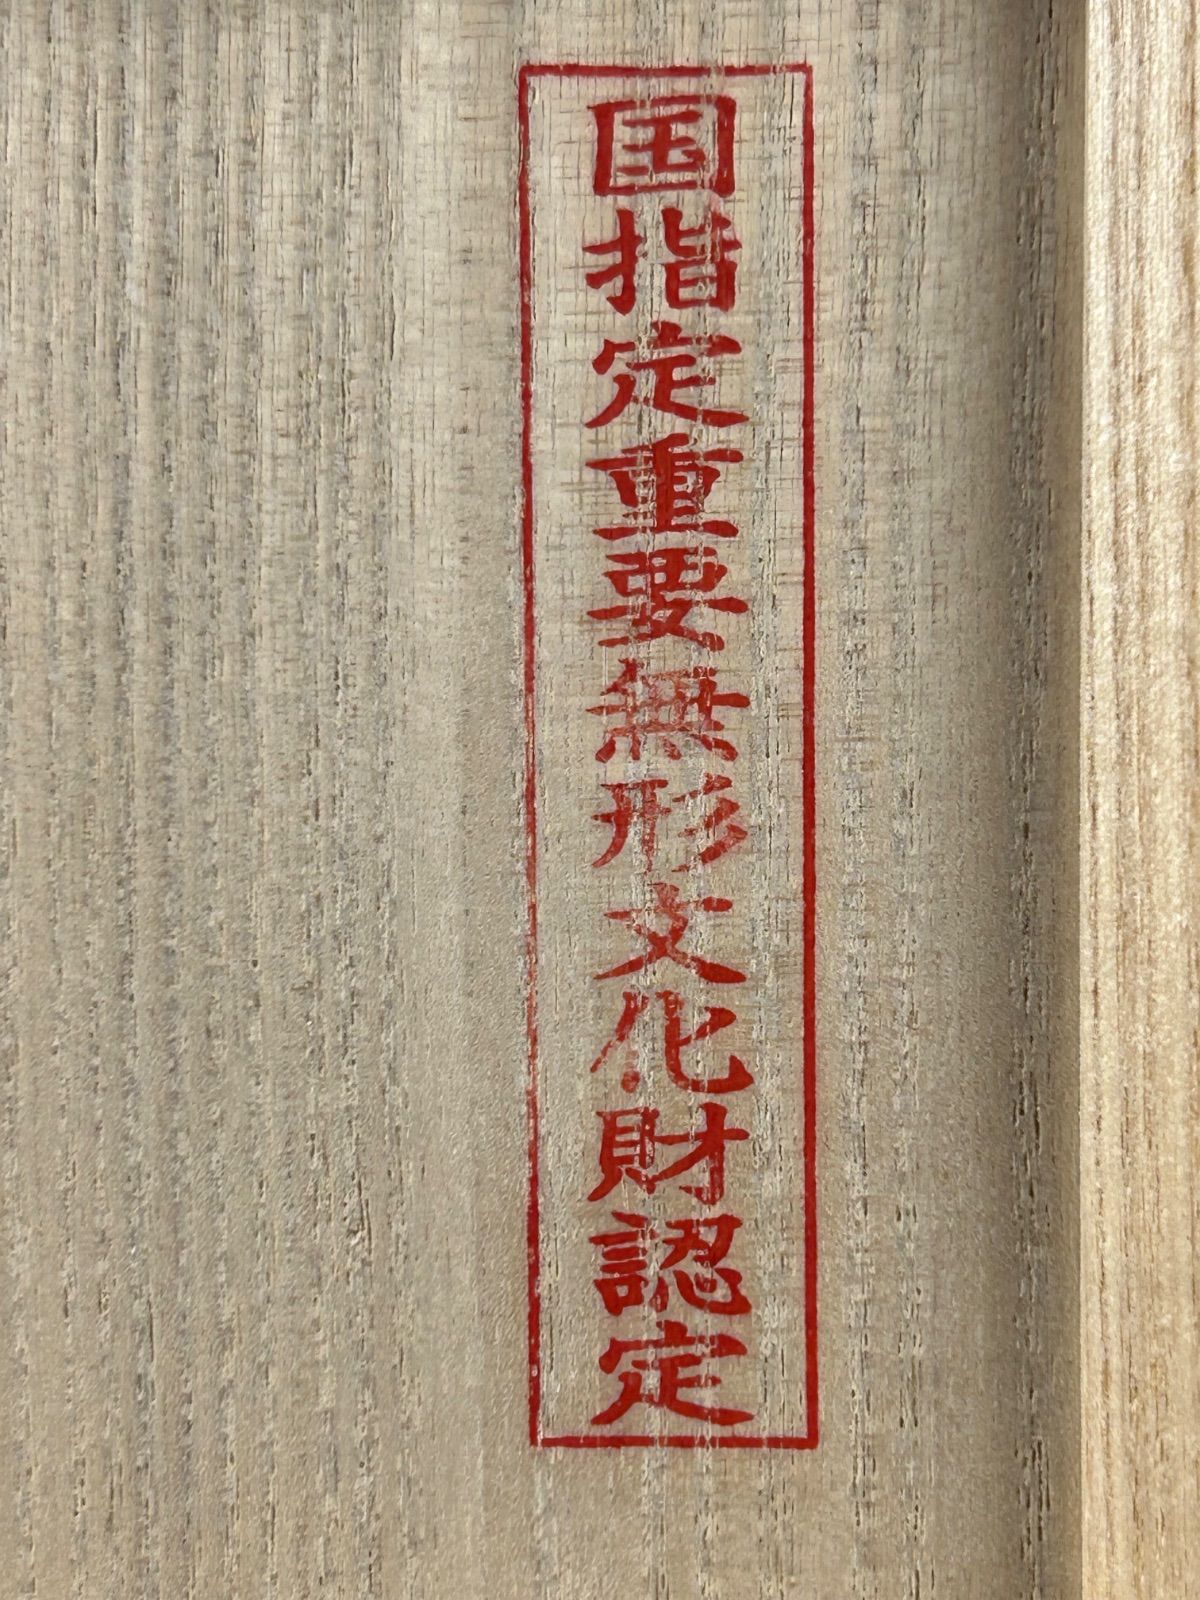 国指定重要無形文化財認定